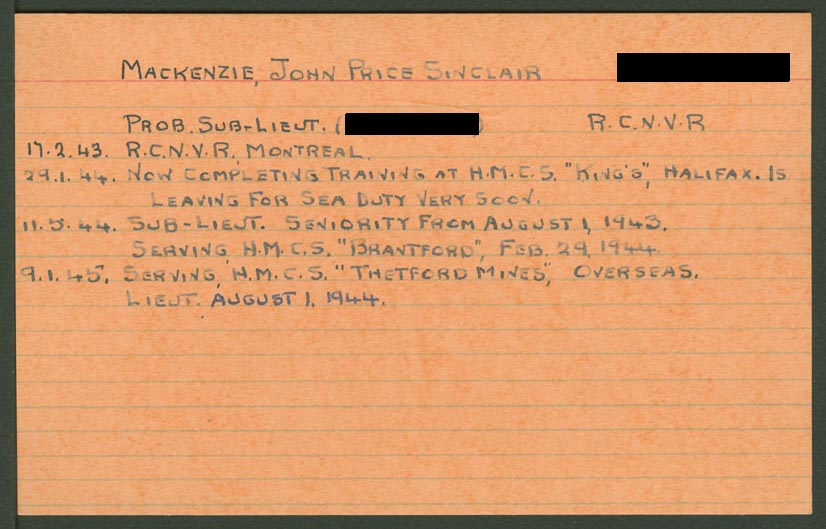 MACKENZIE, JOHN PRICE SINCLAIR
PROB. SUB-LIEUT. ( ) R.C.N.V.R
17.2.43. R.C.N.V.R. MONTREAL.
29.1.44. NOW COMPLETING TRAINING AT H.M.C.S. "KING'S", HALIFAX. IS
LEAVING FOR SEA DUTY VERY SOON.
11.5.44. SUB-LIEUT. SENIORITY FROM AUGUST 1, 1943.
SERVING, H.M.C.S. "BRANTFORD", FEB. 29, 1944.
9.1.45. SERVING, H.M.C.S. "THETFORD MINES", OVERSEAS.
LIEUT. AUGUST 1, 1944.